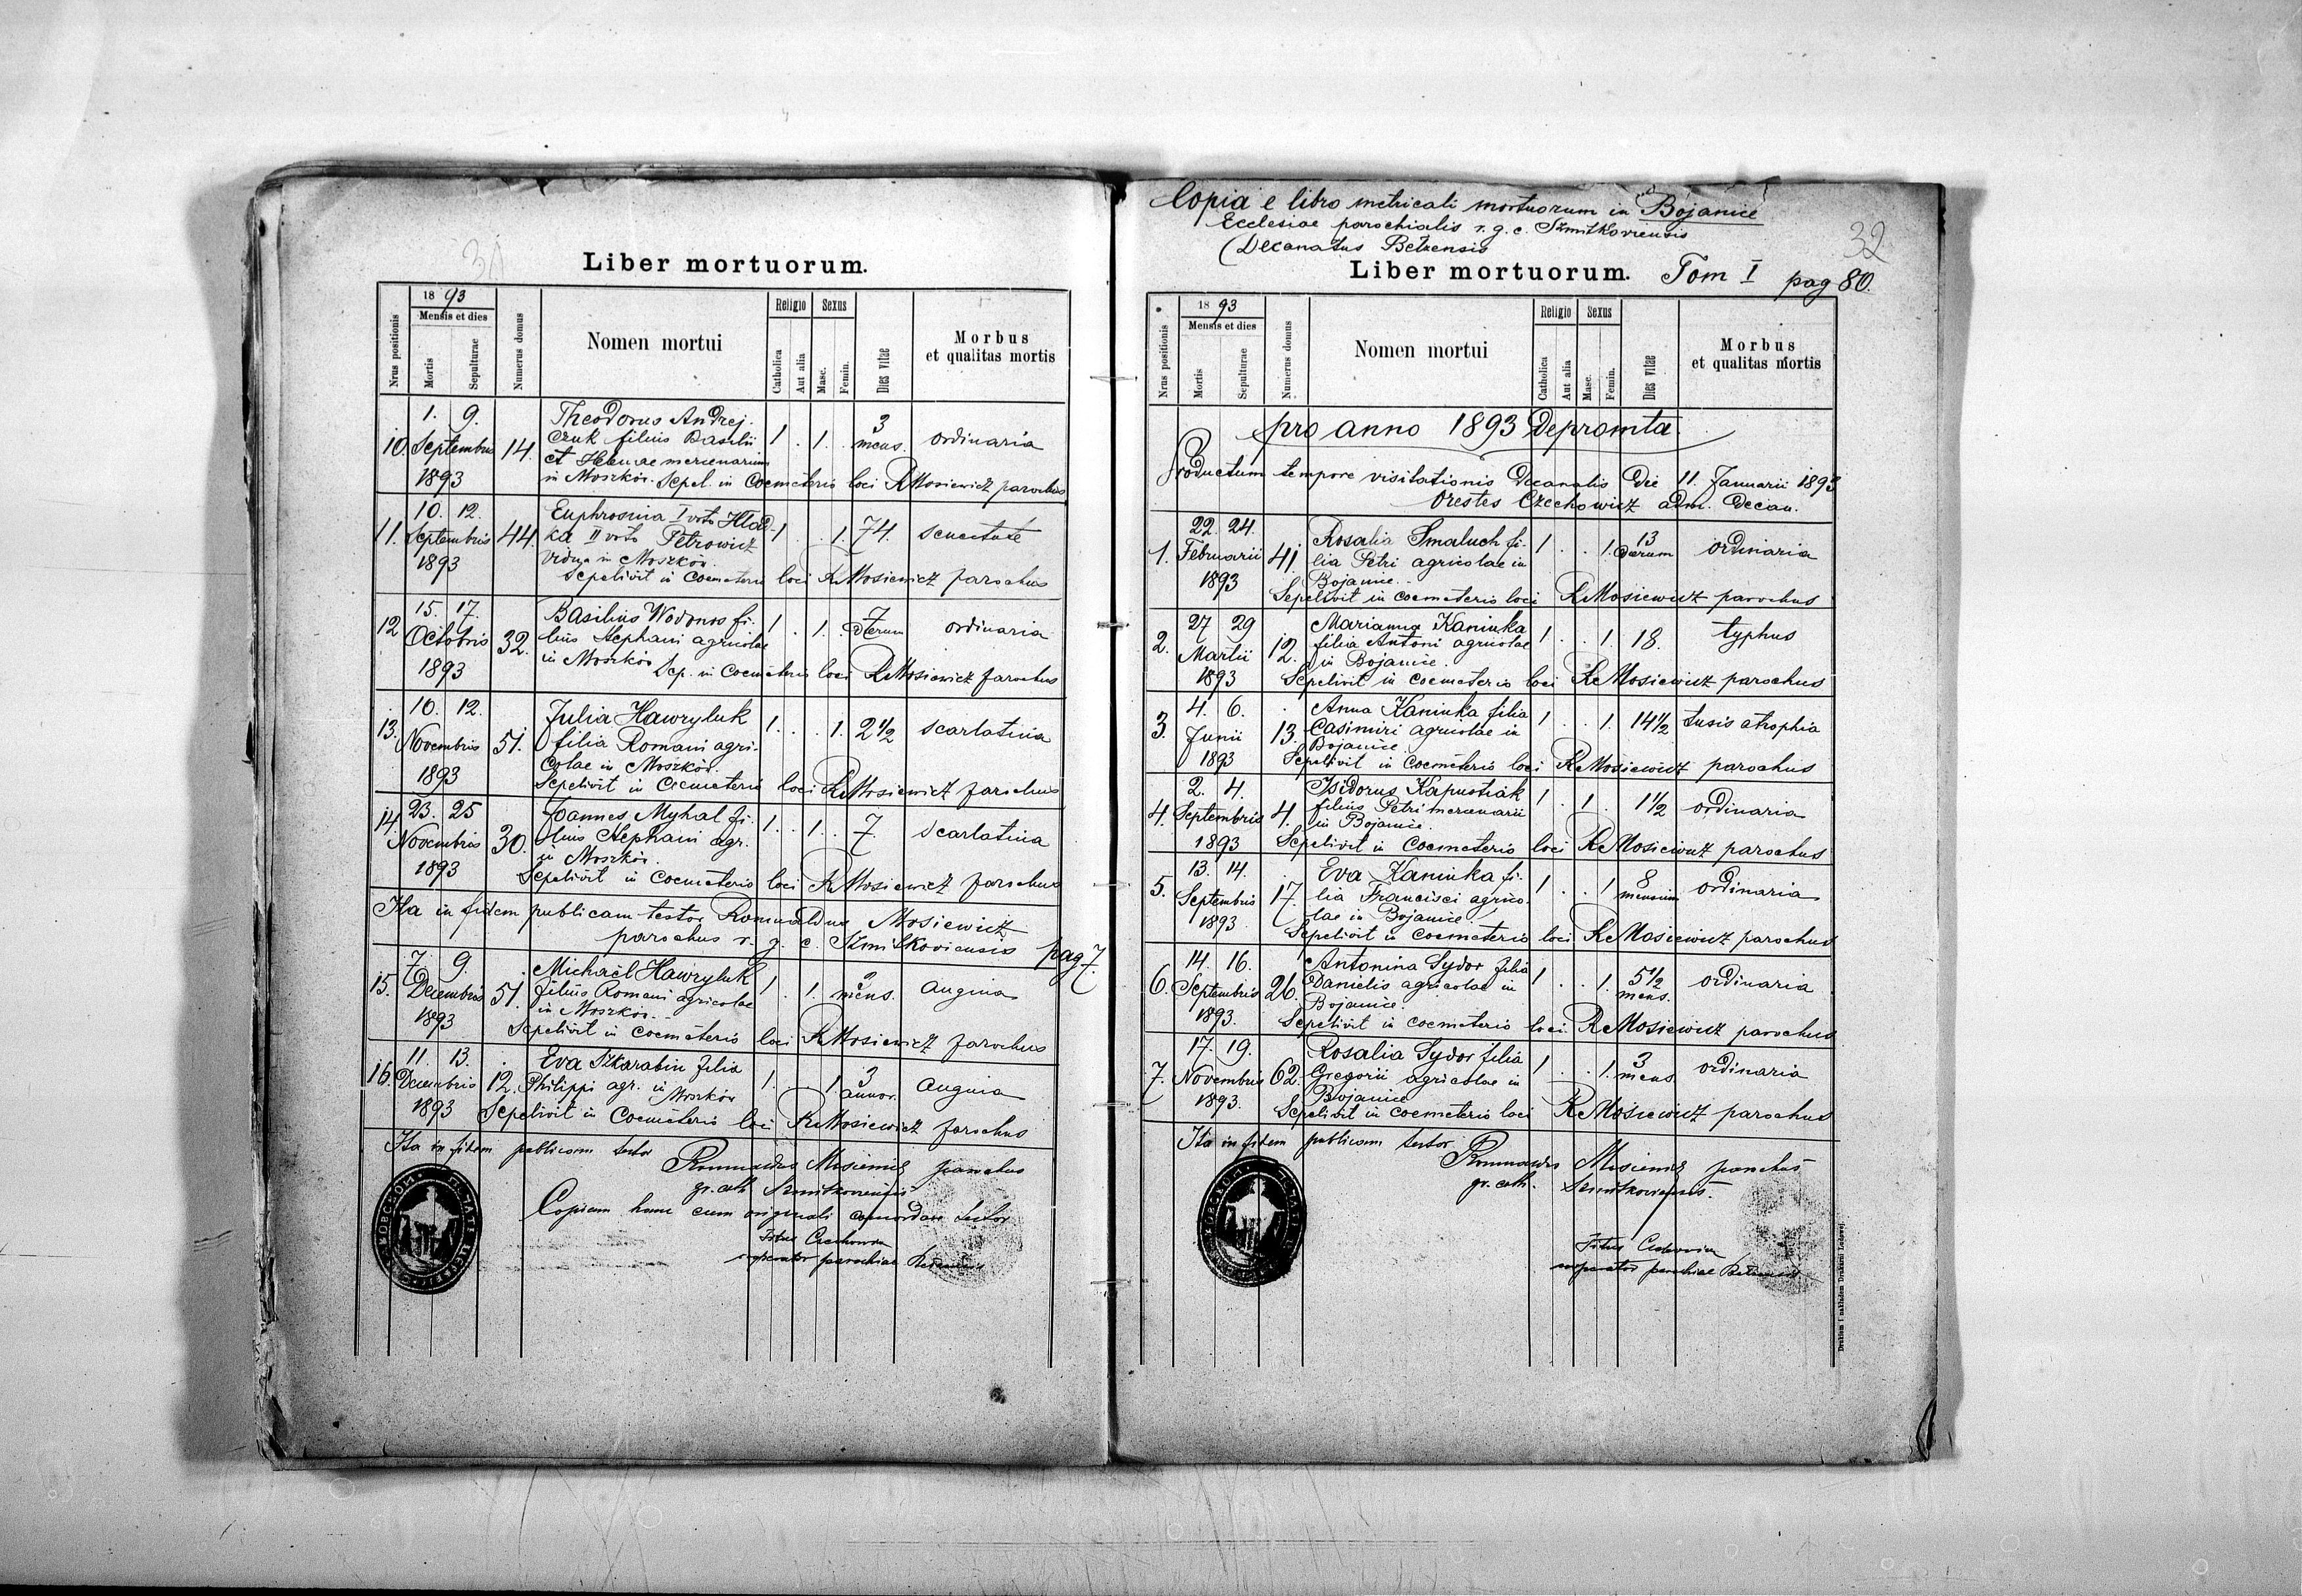 Liber mortuorum.
Nrus positionis
18 93
Mensis et dies
Mortis
Sepulturae
Numerus domus
Nomen mortui
Religio
Catholica
Aut alia
Sexus
Masc.
Femin.
Dies vitae
Morbus
et qualitas mortis
1. 9. Theodorus Andrej- 3
10. Septembris 14. czuk filius Basilii 1 . 1. mens. ordinaria
et Helenae mercenarium
1893 in Moszków. Sepel. in Coemeterio loci RMosiewicz parochus
10. 12. Euphrosina I voto Hlad-
11. Septembris 44. ka II voto Petrowicz 1 . . 1. 74. senectute
1893 vidua in Moszków.
Sepelivit in Coemeterio loci RMosiewicz parochus
15. 17. Basilius Wodonos fi- 7
12 Octobris 32. lius Stephani agricolae 1 . 1. dierum ordinaria
1893 in Moszków Sep. in Coemeterio loci RMosiewicz parochus
10. 12. Julia Hawryluk
13. Novembris 51. filia Romani agri- 1. . . 1. 2 1/2 scarlatina
colae in Moszków.
1893 Sepelivit in Coemeterio loci RMosiewicz parochus
23. 25 Joannes Myhal fi-
14. Novembris 30. lius Stephani agr. 1. . 1. . 7. scarlatina
in Moszków.
1893 Sepelivit in Coemeterio loci RMosiewicz parochus
Ita in fidem publicam testor Romualdus Mosiewicz
parochus r. g. c. Szmitkoviensis pag 7.
7. 9. Michaël Hawryluk 2
15. Decembris 51. filius Romani agricolae 1 . 1. mens. angina
in Moszków.
1893 Sepelivit in Coemeterio loci RMosiewicz parochus
11. 13. Eva Szkarabin filia 3
16. Decembris 12. Philippi agr. in Moszków 1. . . 1. annor. angina
1893 Sepelivit in Coemeterio loci RMosiewicz parochus
Ita in fidem publicam testor Romualdus Mosiewicz parochus
gr. cath Szmitkoviensis
Copiam hanc cum originali concordare testor
Titus Czechowicz
cooperator parochiae
Copia e libro metricali mortuorum in Bojanice
Ecclesiae parochialis r. g. c. Szmitkoviensis
Decanatus Belzensis
32
Liber mortuorum. Tom I pag 80.
Nrus positionis
18 93
Mensis et dies
Mortis
Sepulturae
Numerus domus
Nomen mortui
Religio
Catholica
Aut alia
Sexus
Masc.
Femin.
Dies vitae
Morbus
et qualitas mortis
pro anno 1893 depromta.
Productum tempore visitationis Decanalis die 11. Januarii 1893
Orestes Czechowicz adm. decan.
22. 24. Rosalia Smaluch fi- 13
1. Februarii 41. lia Petri agricolae in 1 . . 1. dierum ordinaria
1893 Bojanice.
Sepelivit in coemeterio loci RMosiewicz parochus
27 29 Marianna Kaniuka
2. Martii 12. filia Antoni agricolae 1 . . 1. 18. typhus
in Bojanice.
1893 Sepelivit in coemeterio loci RMosiewicz parochus
4. 6. Anna Kaniuka filia
3. Junii 13. Casimiri agricolae in 1 . . 1. 14 1/2 tusis atrophia
Bojanice.
1893 Sepelivit in Coemeterio loci RMosiewicz parochus
2. 4. Isidorus Kapustiak
4. Septembris 4. filius Petri mercenarii 1 . 1 . 1 1/2 ordinaria
in Bojanice.
1893 Sepelivit in Coemeterio loci RMosiewicz parochus
13. 14. Eva Kaniuka fi- 8
5. Septembris 17. lia Francisci agrico- 1 . . 1 mensium ordinaria
1893 lae in Bojanice.
Sepelivit in coemeterio loci RMosiewicz parochus
14. 16. Antonina Sydor filia 5 1/2
6. Septembris 26. Danielis agricolae in 1 . . 1. mens. ordinaria
1893. Bojanice.
Sepelivit in coemeterio loci RMosiewicz parochus
17. 19. Rosalia Sydor filia 3
7. Novembris 62. Gregorii agricolae in 1 . . 1. mens. ordinaria
1893. Bojanice
Sepelivit in coemeterio loci RMosiewicz parochus
Ita in fidem publicam testor Romualdus Mosiewicz parochus
gr. cath. Szmitkoviensis.
Titus Czechowicz
cooperator parochiae